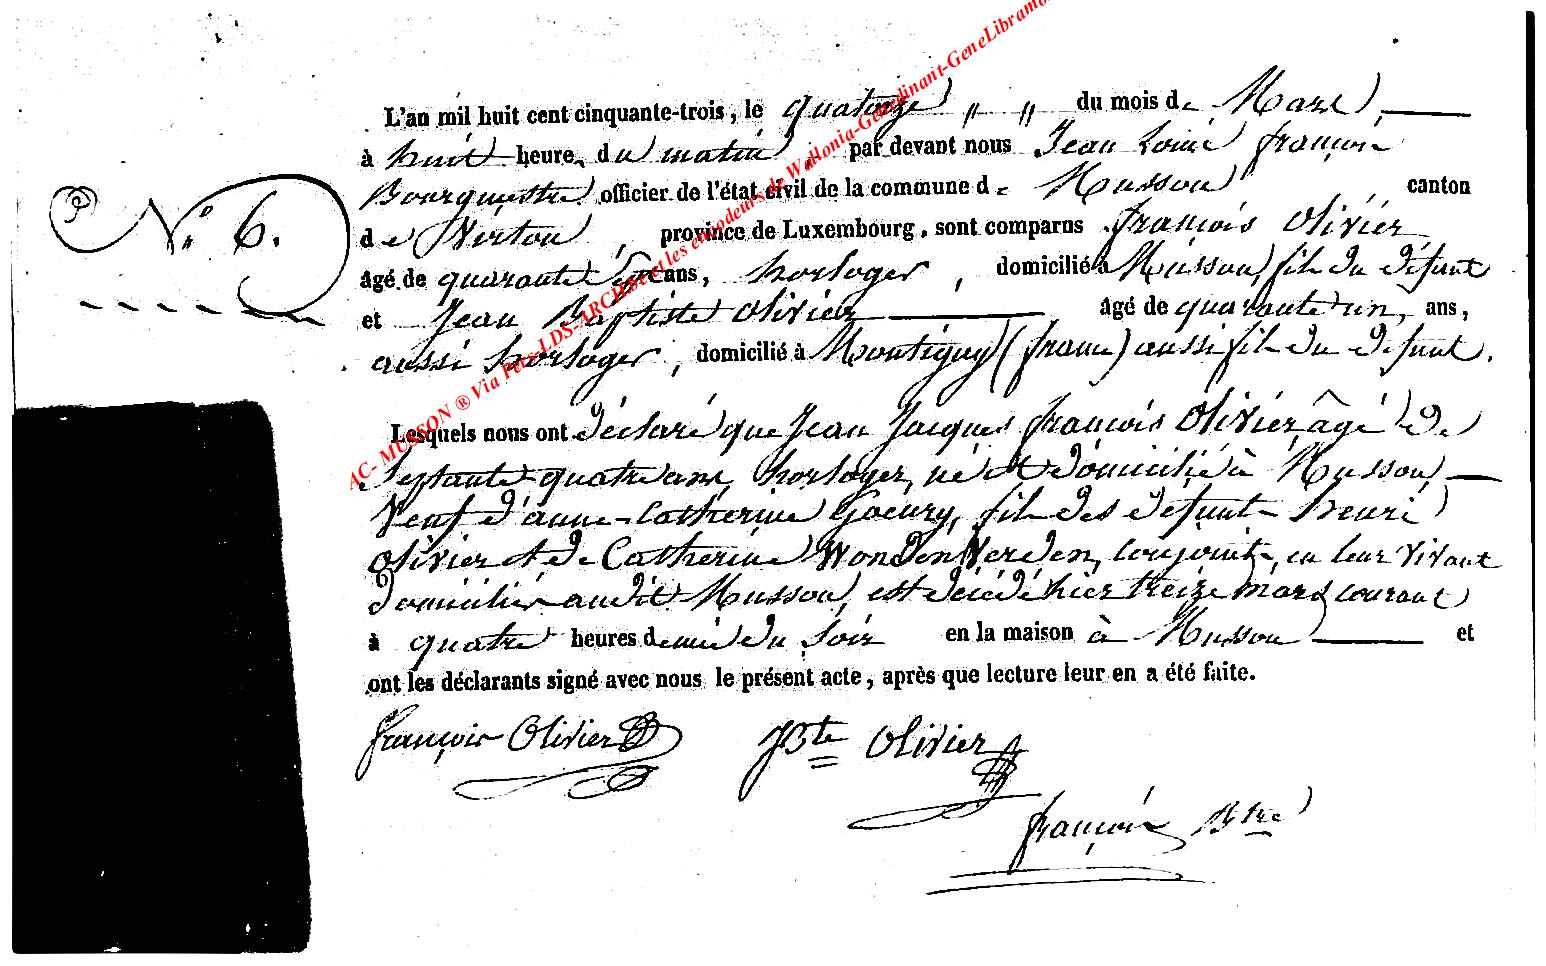 L'an mil huit cent cinquante-trois, le quatorze " " du mois de Mars,
à huit heures du matin, par devant nous Jean Louis françois
Bourguestre officier de l'état civil de la commune de Musson canton
N.° 6.
de Virton, province de Luxembourg, sont comparus françois Olivier
âgé de quarante sept ans, horloger, domicilié à Musson, fils du défunt
et Jean Baptiste Olivier âgé de quarante un, ans,
aussi horloger, domicilié à Montigny (france) aussi fils du défunt.
Lesquels nous ont déclaré que Jean Jacques françois Olivier âgé de
septante quatre ans, horloger, né et domicilié à Musson,
Veuf d'anne-Catherine Goeury, fils des défunts henri
Olivier et de Catherine WonDenVerden, conjoints, en leur vivant
domiciliés audit Musson, est décédé hier treize mars courant
à quatre heures demie du soir en la maison à Musson et
ont les déclarants signé avec nous le présent acte, après que lecture leur en a été faite.
françois Olivier JBte Olivier
françois Btre
AC- MUSSON ® Via Pers-LDS-ARCH et les encodeurs de Wallonia-Genedinant-GeneLibramo